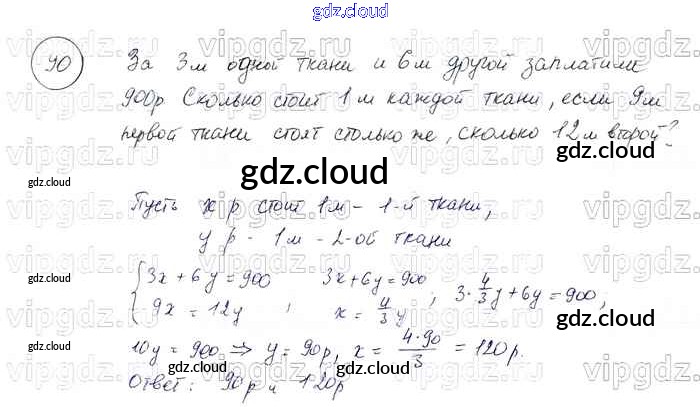 gdz.cloud
90 За 3 м одной ткани и 6 м другой заплатили
900р Сколько стоит 1 м каждой ткани, если 9 м
первой ткани стоят столько же, сколько 12 м второй?
gdz.cloud
gdz.cloud
gdz.cloud
Пусть x р стоит 1м - 1-й ткани,
y р - 1 м - 2-ой ткани
gdz.cloud
gdz.cloud
{3x + 6y = 900
9x = 12y , 3x + 6y = 900
x = 4/3 y , 3 · 4/3 y + 6y = 900,
10y = 900 ⇒ y = 90р, x = 4·90/3 = 120 р.
Ответ: 90р и 120р
gdz.cloud
gdz.cloud
gdz.cloud